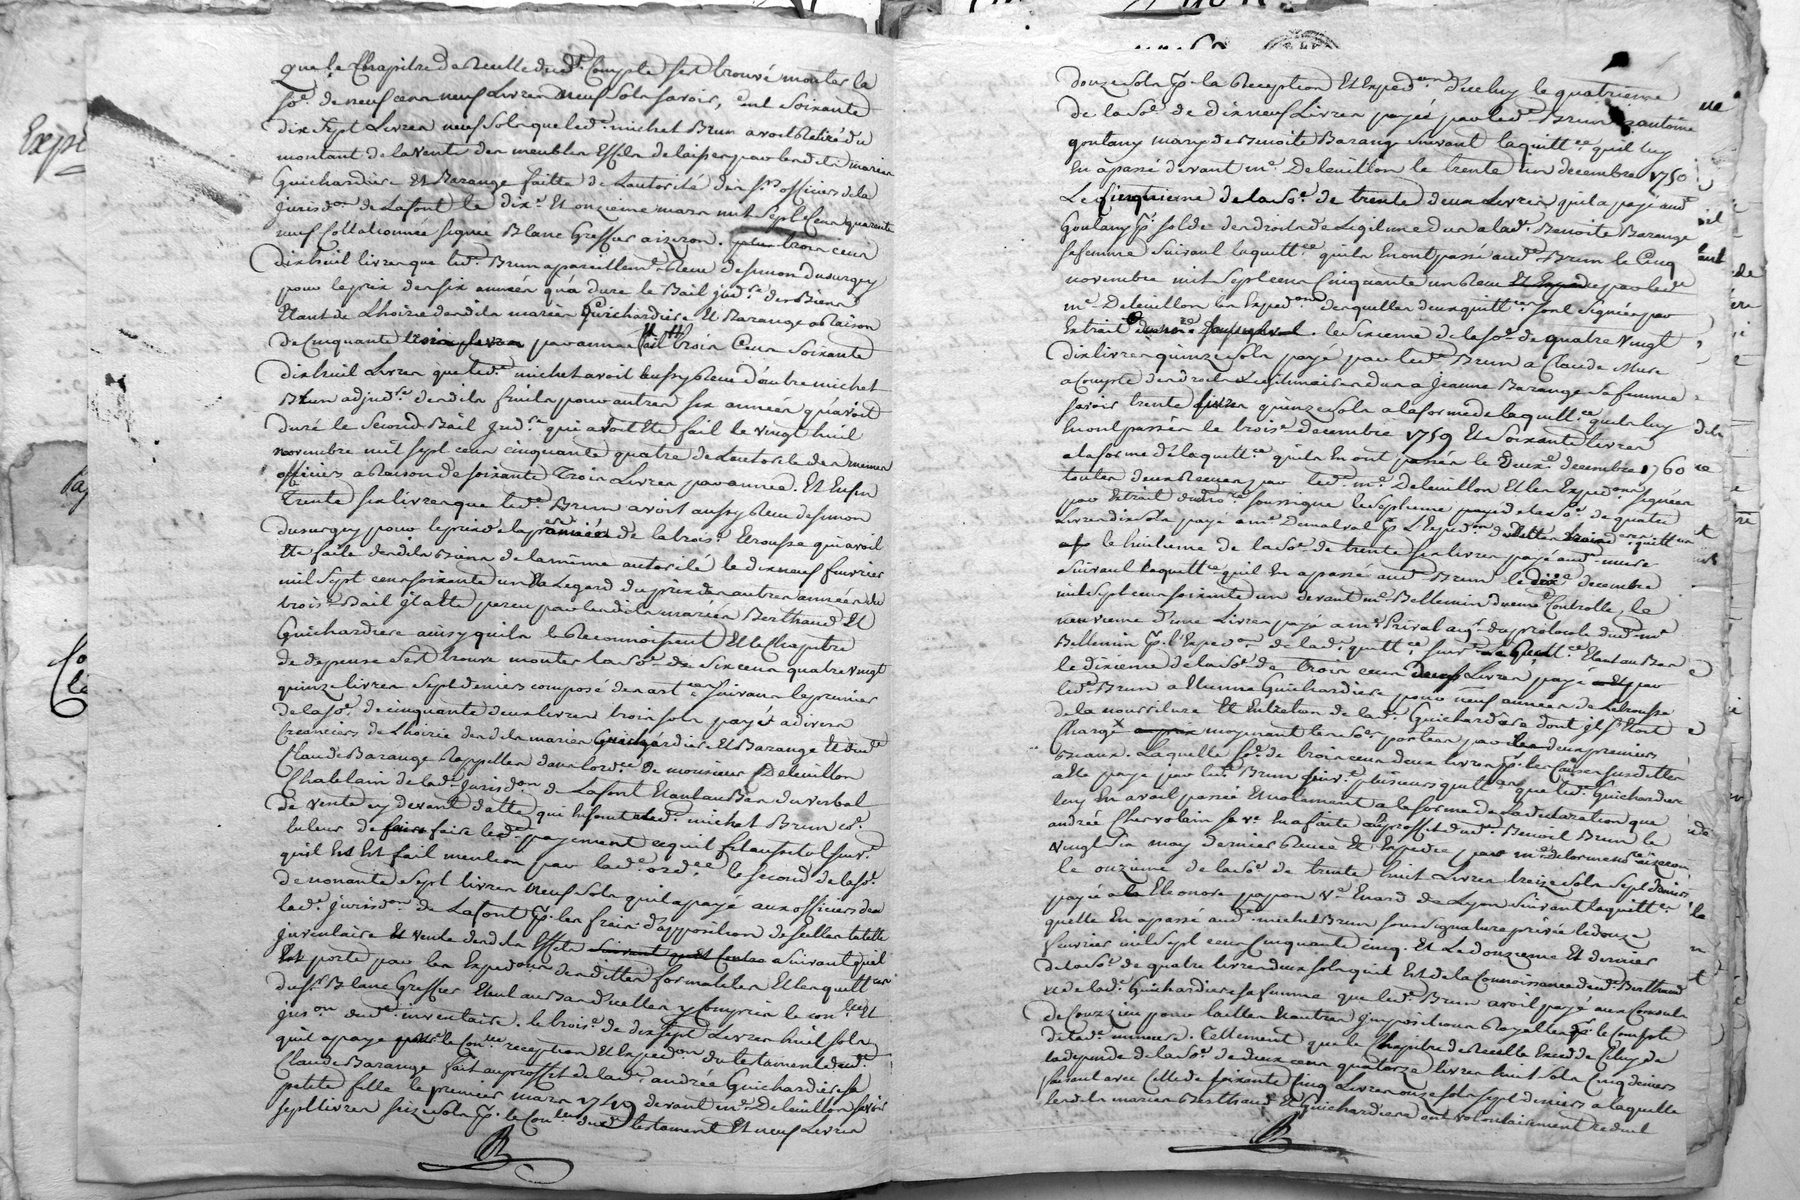 Que le Chapitre de Recette dud.t Compte s'est trouvé monter la
so.e de neuf cens neuf Livres neuf sols savoir, cent soixante
dix sept Livres neuf sols que led.t michel Brun avoit Retiré du
montant de la vente des meubles Effets delaissez par lesdits mariés
Guichardiere Et Barange faitte de L'autorité des s.rs officiers de la
jurisd.on de Lafont le dix.e Et onzieme mars mil sept cens quarente
neuf Collationnée signée Blanc Greffier trois cens
dixhuit livres que led.t Brun a pareillem.t Receu de simon dusurgey
pour le prix des six années qu'a duré le Bail jud.re des Biens
Etant de L'hoirie desdits mariés Guichardiere Et Barange a Raison
de Cinquante par année trois Cens soixante
dixhuit Livres que led.t michel avoit aussy Receu d'autre michel
Brun adjud.re desdits fruits pour autres six années qu'avoit
duré le second Bail jud.re qui avoit Eté fait le vingt huit
novembre mil sept cens cinquante quatre de L'autorité des memes
officiers a Raison de soixante trois Livres par année. Et Enfin
Trente six livres que led.t Brun avoit aussy Receu de simon
dusurgey pour le prix de la p.re année de la trois.e Etrousse qui avoit
Eté faite desdits Biens de la même autorité le dix neuf fevrier
mil sept cens soixante un Le Regard du prix des autres années du
trois.e Bail il a Eté perçu par lesdits mariés Berthaud Et
Guichardiere ainsy qu'ils le Reconnoissent Et le Chapitre
de depense s'est trouvé monter la so.e de six cens quatre vingt
quinze livres sept deniers composé des art.es suivans le premier
de la so.e de cinquante deux livres trois sols payés a divers
Creanciers de L'hoirie desdits mariés Guichardiere Et Barange Et dud.t
Claude Barange Rappellés dans l'ord.ce de monsieur Deleuillon
Chatelain de lad.te jurisd.on de Lafont Etant au Bas du verbal
de vente cy devant datté qui Enjoint aud.t michel Brun co.e
tuteur de faire led.t payement
qu'il En Est fait mention par lad.te ord.ce le second de la so.e
de nonante sept livres neuf sols qu'il a payé aux officiers de
lad.te jurisd.on de Lafont p.r les frais d'apposition de scellés
inventaire Et vente desdits Effets suivant qu'il
Est porté par les Exped.ons desdittes formalités Et les quitt.ces
du s.r Blanc Greffier Etant au Bas d'icelles y Compris le con.lle Et
dud.t inventaire. le trois.e de dix sept Livres huit sols
qu'il a payé pour le Con.lle reception Et Exped.on du testament dud.t
Claude Barange fait au proffit de lad.te andrée Guichardiere sa
petite fille le premier mars 1749 devant m.e Deleuillon savoir
sept livres seize sols p.r le Con.lle dud.t testament Et neuf Livres
douze sols p.r la Reception Et Exped.on d'iceluy le quatrieme
de la so.e de dix neuf Livres payée par led.t Brun a antoine
goutany mary de Benoite Barange suivant la quitt.ce qu'il luy
En a passé devant m.e Deleuillon le trente un decembre 1750
Le Cinquieme de la so.e de trente deux Livres qu'il a payé aud.t
Goutany p.r solde des droits de Legitime dus a lad.te Benoite Barange
sa femme suivant la quitt.ce qu'ils En ont passé aud.t Brun le Cinq
novembre mil sept cens Cinquante un Receu par led.t
m.e Deleuillon les Exped.ons desquelles deux quitt.ces sont signées par
Extrait le sixieme de la so.e de quatre vingt
dix livres quinze sols payé par led.t Brun a Claude Mure
a Compte des droits Legitimaires dus a Jeanne Barange sa femme
savoir trente livres quinze sols a la forme de la quitt.ce qu'ils luy
En ont passée le trois.e decembre 1759 Et soixante livres
a la forme de la quitt.ce qu'ils En ont passée le deux.e decembre 1760
toutes deux Receues par led.t m.e Deleuillon Et les Exped.ons signées
par Extrait du no.re soussigné le septieme payé de la so.e de quatre
Livres dix sols payé a m.e Dumalval p.r L'Exped.on desdittes trois quitt.ces
le huitieme de la so.e de trente six livres payé aud.t mure
suivant la quitt.ce qu'il En a passé aud.t Brun le dix.e decembre
mil sept cens soixante un devant m.e Bellemin duement Controllé, le
neuvieme d'une Livre payé a m.e Prival aiq.r du protocole dud.t m.e
Bellemin p.r l'Exped.on de lad.te quitt.ce suiv.t Etant au Bas
le dixieme de la so.e de trois cens deux Livres payé par
led.t Brun a Etienne Guichardiere pour neuf années de
de la nourriture Et Entretien de lad.te Guichardiere dont il s'Etoit
Chargé moyenant les so.es portées par les deux premiers
Beaux. Laquelle so.e de trois cens deux livres p.r les Causes susdittes
a Eté payé par led.t Brun suiv.t plusieurs quitt.ces que led.t Guichardiere
luy En avoit passée Et notament a la forme de la declaration que
andrée Chervolain sa v.e En a faite au proffit dud.t Benoit Brun le
vingt six may dernier Receue Et Expediée par m.e delorme no.re
le onzieme de la so.e de trente huit Livres treize sols sept deniers
payée a la Eleonore papon v.e Enard de Lyon suivant la quitt.ce
qu'elle En a passé aud.t michel Brun sous signature privée le douze
fevrier mil sept cens Cinquante cinq. Et Le douzieme Et dernier
de la so.e de quatre livres deux sols qui Est de la Connoissance dud.t Berthaud
Et de lad.te Guichardiere sa femme que led.t Brun avoit payé aux Consuls
de Couzieu pour tailles Et autres impositions Royalles p.r le Compte
de lad.te mineure. Tellement que le Chapitre de Recette Excede Celuy de
la depense de la so.e de deux cens quatorze livres huit sols Cinq deniers
faisant avec Celle de soixante Cinq Livres onze sols sept deniers a laquelle
lesdits mariés Berthaud Et Guichardiere ont volontairement reduit